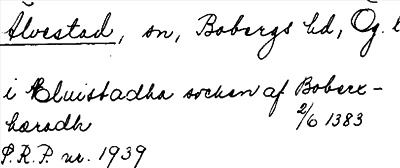 Älvestad, sn, Bobergs hd, Ög. l
i Eluistadha sochen af Boberx-
hæradh 2/6 1383
S.R.P. nr. 1939